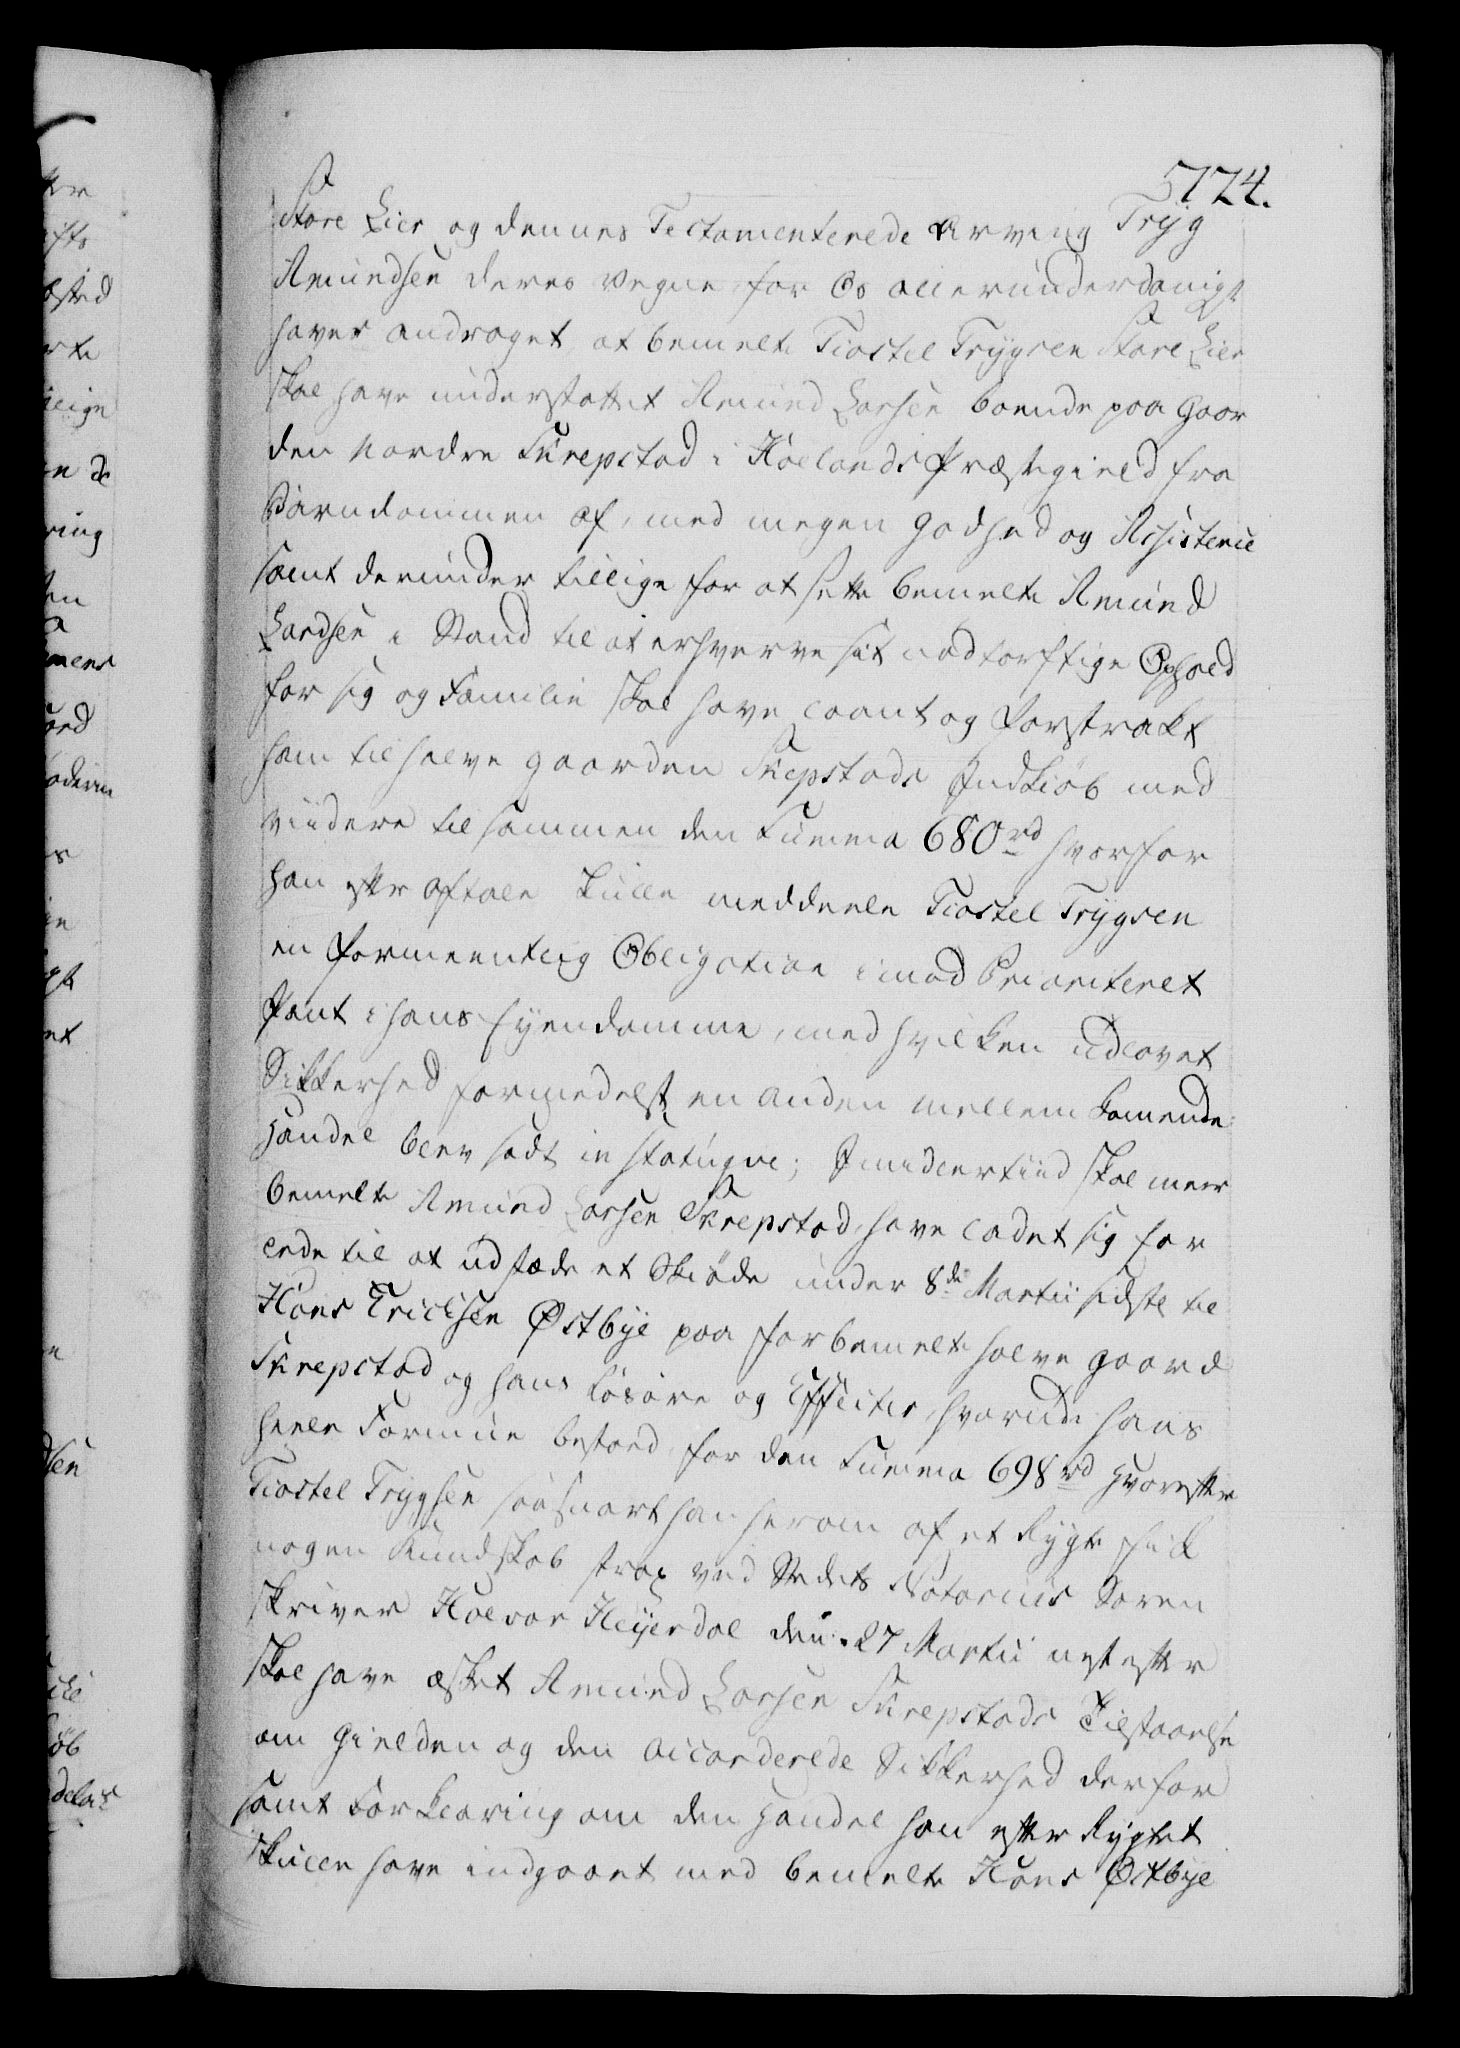 5724.
Store Lier og dennes Testamenterede Arving Tryg
Amundsen deres Vegne for Os allerunderdanigst
haver andraget, at bemelte Tiostel Trygsen Store Lier
skal have understøttet Amund Larsen boende paa Gaar
den Nordre Skrepstad i Hølands Præstegield fra
Barndommen af, med megen Godhed og Assistence
samt derunder tillige for at sette bemelte Amund
Lardsen i Stand til at erhverve sit nødtørftige Ophold
for sig og Familie skal have laant og forstrakt
ham til halve Gaarden Skepstads Indkiøb med
viidere tilsammen den Summa 680 rd hvorfor
han efter Aftale skulle meddeele Tiostel Trygsen
en formeentlig Obligation imod Prioriteret
Pant i hans Eyendomme, med hvilken udlovet
Sikkerhed formedelst en anden mellem komende
Handel blev sadt in statu qve; Imidlertiid skal meer
bemelte Amund Larsen Skrepstad have ladet sig for
lede til at udstæde et Skiøde under 8de Martii sidste til
Hans Erichsen Østbye paa forbemelte halve Gaard
Skrepstad og hans Løsøre og Effecter, hvorudi hans
heele Formue bestoed for den Summa 698 rd hvorefter
Tiostel Trygsen saasnart han herom af et Rygte fick
nogen Kundskab strax ved Stedets Notarius Soren
skriver Halvor Heyerdal den 27 Martii nest efter
skal have æsket Amund Larsen Skrepstads Tilstaaelse
om Gielden og den accorderede Sikkerhed derfor
samt Forklaring om den Handel han efter Rygtet
skulle have indgaaet med bemelte Hans Østbye